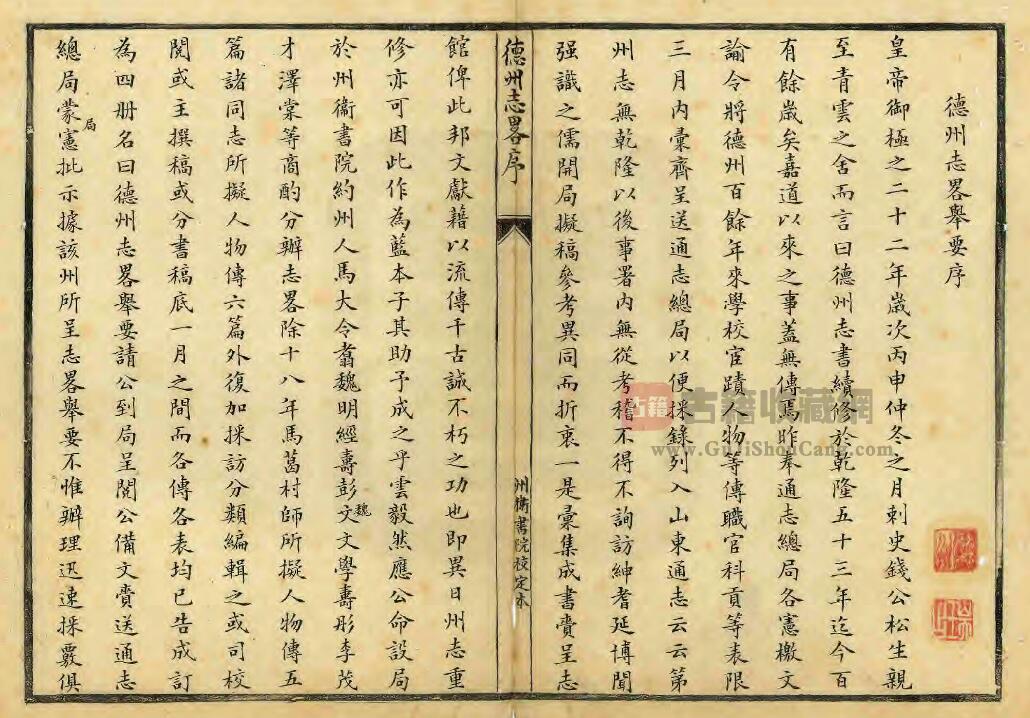 德州志畧舉要序
皇帝御極之二十二年歲次丙申仲冬之月刺史錢公松生親
至青雲之舍而言曰德州志書續修於乾隆五十三年迄今百
有餘歲矣嘉道以來之事蓋無傳焉昨奉通志總局各憲檄文
諭令將德州百餘年來學校宦蹟人物等傳職官科貢等表限
三月內彙齊呈送通志總局以便採錄列入山東通志云云第
州志無乾隆以後事署內無從考稽不得不詢訪紳耆延博聞
强識之儒開局擬稿參考異同而折衷一是彙集成書賫呈志
德州志畧序
州衛書院校定本
館俾此邦文獻藉以流傳千古誠不朽之功也即異日州志重
修亦可因此作為藍本子其助予成之乎雲毅然應公命設局
於州衛書院約州人馬大令翥魏明經壽彭文文學壽彤李茂
魏
才澤棠等商酌分辦志畧除十八年馬葛村師所擬人物傳五
篇諸同志所擬人物傳六篇外復加採訪分類編輯之或司校
閱或主撰稿或分書稿底一月之間而各傳各表均已告成訂
為四册名曰德州志畧舉要請公到局呈閱公備文賫送通志
總局蒙憲批示據該州所呈志畧舉要不惟辦理迅速採覈俱
局
古籍
古籍收藏網
www.GuJiShouCang.com